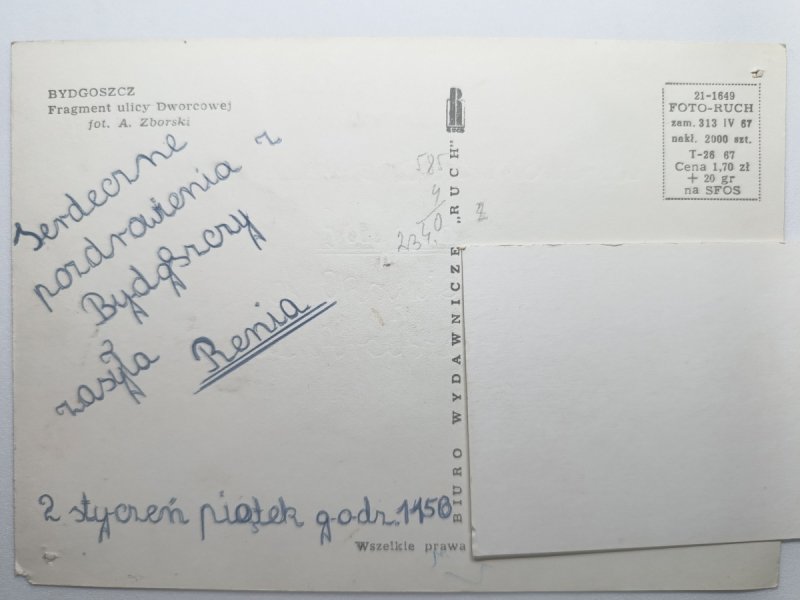 BYDGOSZCZ
Fragment ulicy Dworcowej
fot. A. Zborski
Serdeczne
pozdrowienia z
Bydgoszczy
zasyła Renia
2 styczeń piątek godz. 1450
Wszelkie prawa
BIURO WYDAWNICZE „RUCH"
RUCH
585
4
2340
21-1649
FOTO-RUCH
zam. 313 IV 67
nakł. 2000 szt.
T-26 67
Cena 1,70 zł
+ 20 gr
na SFOS